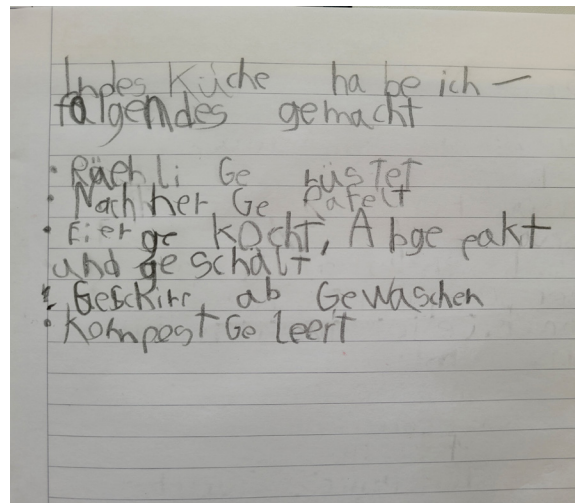 Indes Küche ha be ich –
folgendes gemacht
• Räehli Ge rüstet
• Nachher Ge Rafelt
• Eier ge kocht, Abge pakt
und ge schält
• Geschirr ab Gewaschen
• Kompost Ge leert